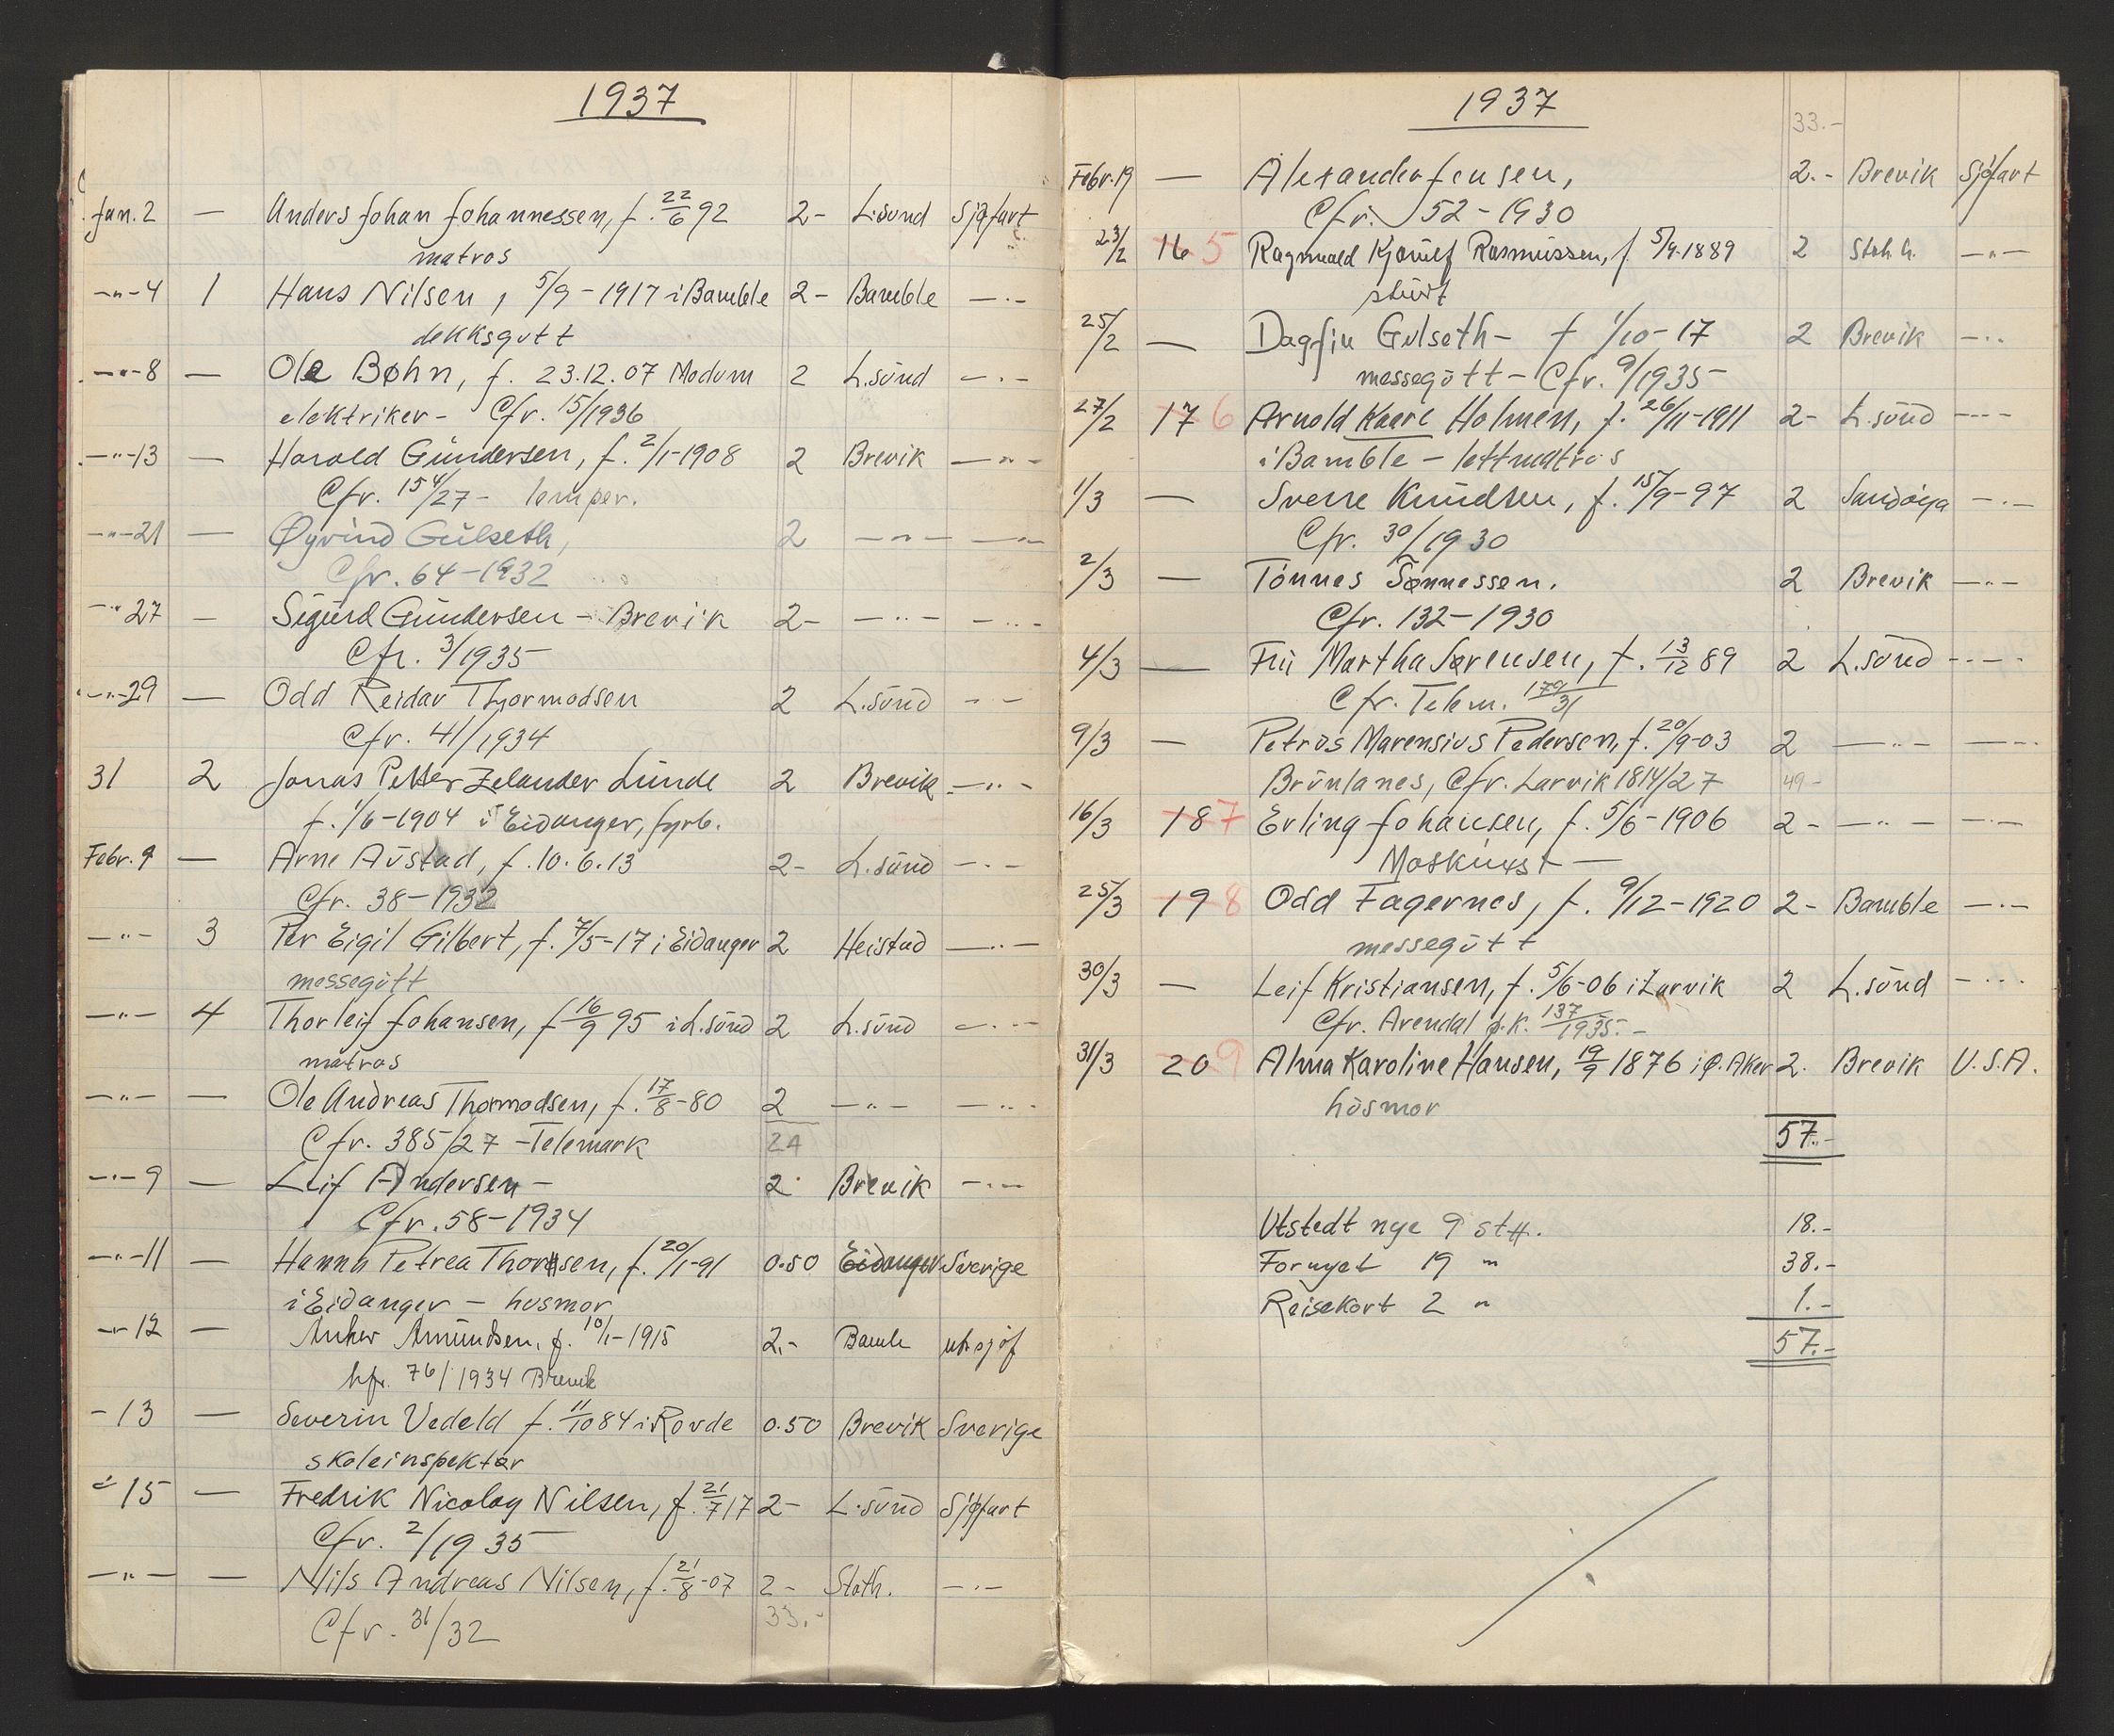 1937
Jan. 2 — Anders Johan Johannessen, f. 22/6 92 2- L.sund Sjøfart
matros
-"- 4 1 Hans Nilsen, 5/9 - 1917 i Bamble 2- Bamble -"-
dekksgutt
-"- 8 — Ole Bøhn, f. 23.12.07 Modum 2 L.sund -"-
elektriker - Cfr. 15/1936
-"- 13 — Harald Gundersen, f. 2/1-1908 2 Brevik -"-
Cfr. 154/27 - lemper.
-"- 21 — Øyvind Gulseth, 2 -"- -"-
Cfr. 64-1932
-"- 27 — Sigurd Gundersen - Brevik 2- -"- -"-
Cfr. 3/1935
-"- 29 — Odd Reidar Thormodsen 2 L.sund -"-
Cfr. 41/1934
31 2 Jonas Petter Zelander Lunde 2 Brevik -"-
f. 1/6-1904 i Eidanger, fyrb.
Febr. 9 — Arne Austad, f. 10.6.13 2- L.sund -"-
Cfr. 38-1932
-"- 3 Per Eigil Gilbert, f. 7/5-17 i Eidanger 2 Heistad -"-
messegutt
-"- 4 Thorleif Johansen, f 16/9 95 i L.sund 2 L.sund -"-
matros
-"- — Ole Andreas Thormodsen, f. 17/8-80 2 -"- -"-
Cfr. 385/27 - Telemark 24
-"- 9 — Leif Andersen - 2 Brevik -"-
Cfr. 58-1934
-"- 11 — Hanna Petrea Thorsen, f. 20/1-91 0.50 Eidanger Sverige
i Eidanger - husmor
-"- 12 — Anker Amundsen, f. 10/1-1915 2.- Bamle utr sjøf
kfr. 76/1934 Brevik
- 13 — Severin Vedeld f. 11/10 84 i Rovde 0.50 Brevik Sverige
skoleinspektør
-"- 15 — Fredrik Nicolay Nilsen, f. 21/7 17 2- L.sund Sjøfart
Cfr. 2/1935
-"- — Nils Andreas Nilsen, f. 21/8-07 2- Stath. -"-
33.-
Cfr. 31/32
1937
33.-
Febr. 19 — Alexander Jensen, 2.- Brevik Sjøfart
Cfr. 52-1930
23/2 16 5 Ragnvald Kjøulf Rasmussen, f. 5/9.1889 2 Stath. -"-
stuert
25/2 — Dagfin Gulseth - f 1/10-17 2 Brevik -"-
messegutt - Cfr. 9/1935
27/2 17 6 Arnold Kaare Holmen, f. 26/11-1911 2- L.sund -"-
i Bamble - lettmatros
1/3 — Sverre Knudsen, f. 15/9-97 2 Sandøya -"-
Cfr. 30/1930
2/3 — Tønnes Tønnessen. 2 Brevik -"-
Cfr. 132-1930
4/3 — Fru Martha Sørensen, f. 13/12 89 2 L.sund -"-
Cfr. Telem. 179/31
9/3 — Petrus Marensius Pedersen, f. 20/9-03 2 -"- -"-
Brunlanes, Cfr. Larvik 1814/27 49-
16/3 18 7 Erling Johansen, f. 5/6-1906 2- -"- -"-
Maskinist -
25/3 19 8 Odd Fagernes, f. 9/12-1920 2- Bamble -"-
messegutt
30/3 — Leif Kristiansen, f. 5/6-06 i Larvik 2 L.sund -"-
Cfr. Arendal p.k. 137/1935. -
31/3 20 9 Alma Karoline Hansen, 19/9 1876 i Ø. Aker 2. Brevik U.S.A.
husmor
57.-
Utstedt nye 9 stk. 18.-
Fornyet 19 " 38.-
Reisekort 2 " 1.-
57.-